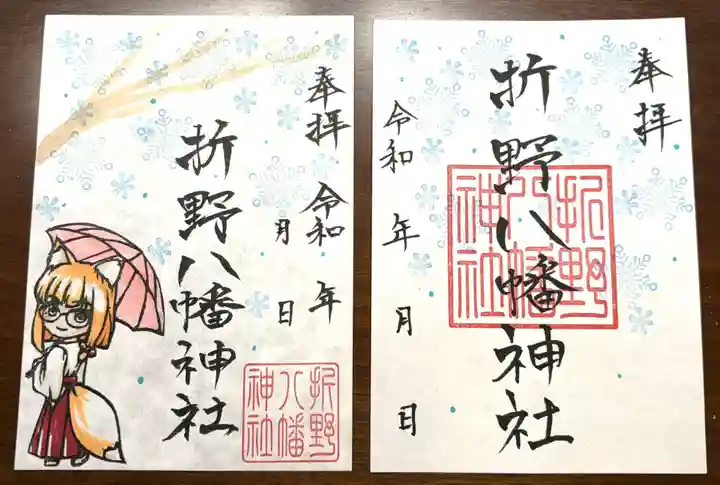 奉拝
令和 年
月 日
折野八幡神社
折野
八幡
神社
奉拝
折野八幡神社
折野
八幡
神社
令和 年 月 日